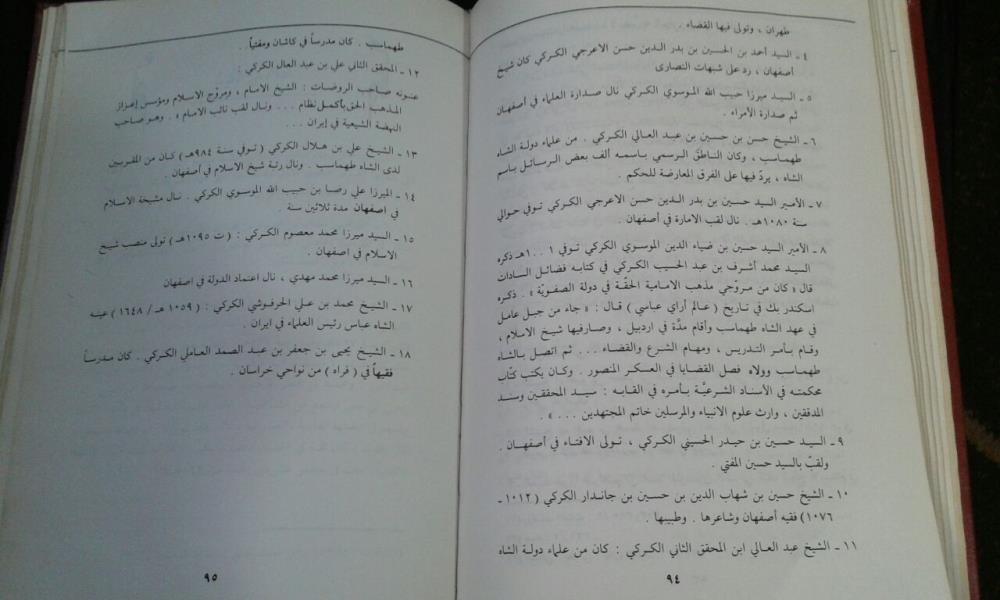 طهران ، وتولى فيها القضاء .
٤ ـ السيد أحمد بن الحسين بن بدر الدين حسن الاعرجي الكركي كان شيخ
أصفهان ، رد على شبهات النصارى
٥ ـ السيد ميرزا حبيب الله الموسوي الكركي نال صدارة العلماء في أصفهان
ثم صدارة الأمراء .
٦ ـ الشيخ حسن بن حسين بن عبد العالي الكركي . من علماء دولة الشاه
طهماسب ، وكان الناطق الرسمي باسمه ألف بعض الرسائل باسم
الشاه ، يردّ فيها على الفرق المعارضة للحكم .
٧ ـ الأمير السيد حسين بن بدر الدين حسن الاعرجي الكركي توفي حوالي
سنة ١٠٨٠هـ . نال لقب الامارة في أصفهان .
٨ ـ الأمير السيد حسين بن ضياء الدين الموسوي الكركي توفي ١٠٠١هـ ذكره
السيد محمد أشرف بن عبد الحسيب الكركي في كتابه فضائل السادات
قال « كان من مروّجي مذهب الامامية الحقّة في دولة الصفويّة » . ذكره
اسكندر بك في تاريخ ( عالم أراي عباسي ) قال : « جاء من جبل عامل
في عهد الشاه طهماسب وأقام مدّة في اردبيل ، وصار فيها شيخ الاسلام ،
وقام بأمر التدريس ، ومهام الشرع والقضاء ... ثم اتصل بالشاه
طهماسب وولاه فصل القضايا في العسكر المنصور . وكان يكتب كتّاب
محكمته في الأسناد الشرعيَّة بأمره في القابه : سيد المحققين وسند
المدققين ، وارث علوم الانبياء والمرسلين خاتم المجتهدين ... » .
٩ ـ السيد حسين بن حيدر الحسيني الكركي ، تولى الافتاء في أصفهان .
ولقبّ بالسيد حسين المفتي .
١٠ ـ الشيخ حسين بن شهاب الدين بن حسين بن جاندار الكركي ( ١٠١٢ ـ
١٠٧٦) فقيه أصفهان وشاعرها . وطبيبها .
١١ ـ الشيخ عبد العالي ابن المحقق الثاني الكركي : كان من علماء دولة الشاه
٩٤
طهماسب . كان مدرساً في كاشان ومفتياً .
١٢ ـ المحقق الثاني علي بن عبد العال الكركي :
عنونه صاحب الروضات : الشيخ الامام ، ومروّج الاسلام ومؤسس إعزاز
المذهب الحق بأكمل نظام .... ونال لقب نائب الامام » . وهو صاحب
النهضة الشيعية في إيران ...
١٣ ـ الشيخ علي بن هلال الكركي ( توفي سنة ٩٨٤هـ) كان من المقربين
لدى الشاه طهماسب . ونال رتبة شيخ الاسلام في أصفهان .
١٤ ـ الميرزا علي رضا بن حبيب الله الموسوي الكركي . نال مشيخة الاسلام
في اصفهان مدة ثلاثين سنة .
١٥ ـ السيد ميرزا محمد معصوم الكركي : ( ت ١٠٩٥هـ ) تولى منصب شيخ
الاسلام في اصفهان .
١٦ ـ السيد ميرزا محمد مهدي ، نال اعتماد الدولة في اصفهان
١٧ ـ الشيخ محمد بن علي الحرفوشي الكركي : ( ١٠٥٩هـ / ١٦٤٨ ) عينه
الشاه عباس رئيس العلماء في ايران .
١٨ ـ الشيخ يحيى بن جعفر بن عبد الصمد العاملي الكركي . كان مدرساً
فقيهاً في ( فراه ) من نواحي خراسان .
٩٥